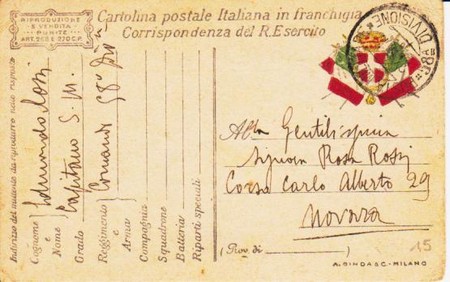 RIPRODUZIONE
E VENDITA
PUNITE
ART. 285 E 370 C.P.
Cartolina postale Italiana in franchigia
Corrispondenza del R. Esercito
DIVISIONE
Indirizzo del mittente da riprodurre nelle risposte
Cognome e Nome Edmondo Rossi
Grado Capitano S. M.
Reggimento e Arma Comando 58ª Divⁿ
Compagnia
Squadrone
Batteria
Riparti speciali
Alla Gentilissima
Signora Rosa Rossi
Corso Carlo Alberto 29
Novara
(Prov. di )
15
A. BINDA & C. - MILANO